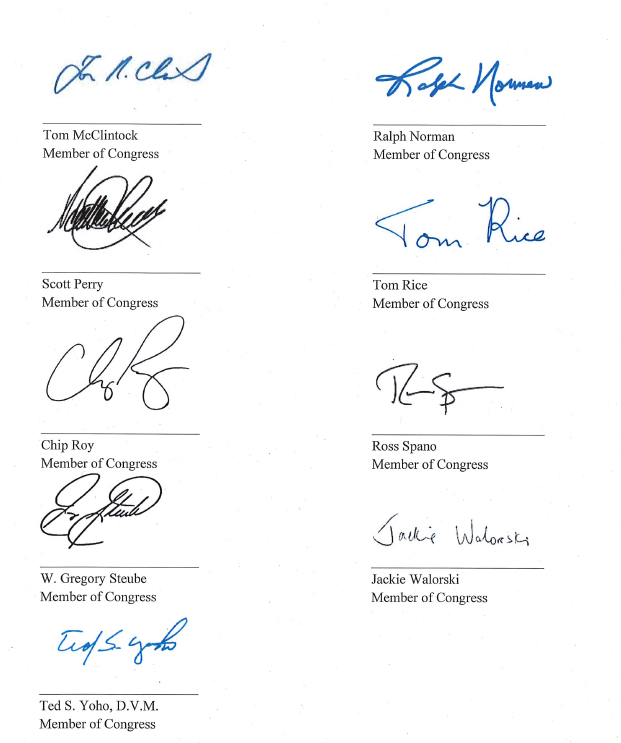 Tom McClintock
Member of Congress
Ralph Norman
Ralph Norman
Member of Congress
Scott Perry
Member of Congress
Tom Rice
Tom Rice
Member of Congress
Chip Roy
Chip Roy
Member of Congress
Ross Spano
Member of Congress
W. Gregory Steube
Member of Congress
Jackie Walorski
Jackie Walorski
Member of Congress
Ted S. Yoho
Ted S. Yoho, D.V.M.
Member of Congress